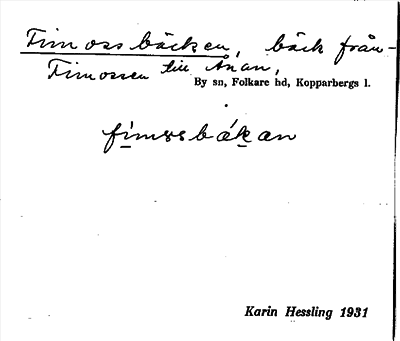 Fimossbäcken, bäck från
Fimossen till Ån an,
By sn, Folkare hd, Kopparbergs l.
fimssbäkan
Karin Hessling 1931